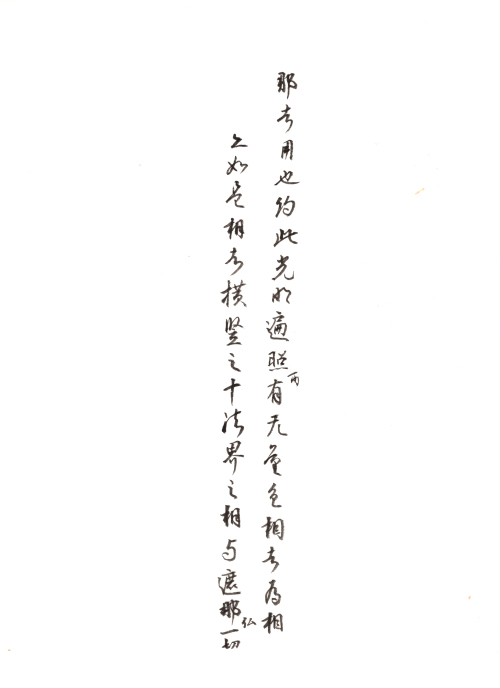 那者用也约此光明遍照而有无量色相者为相
之如是相者横竖之十法界之相与遮那仏一切